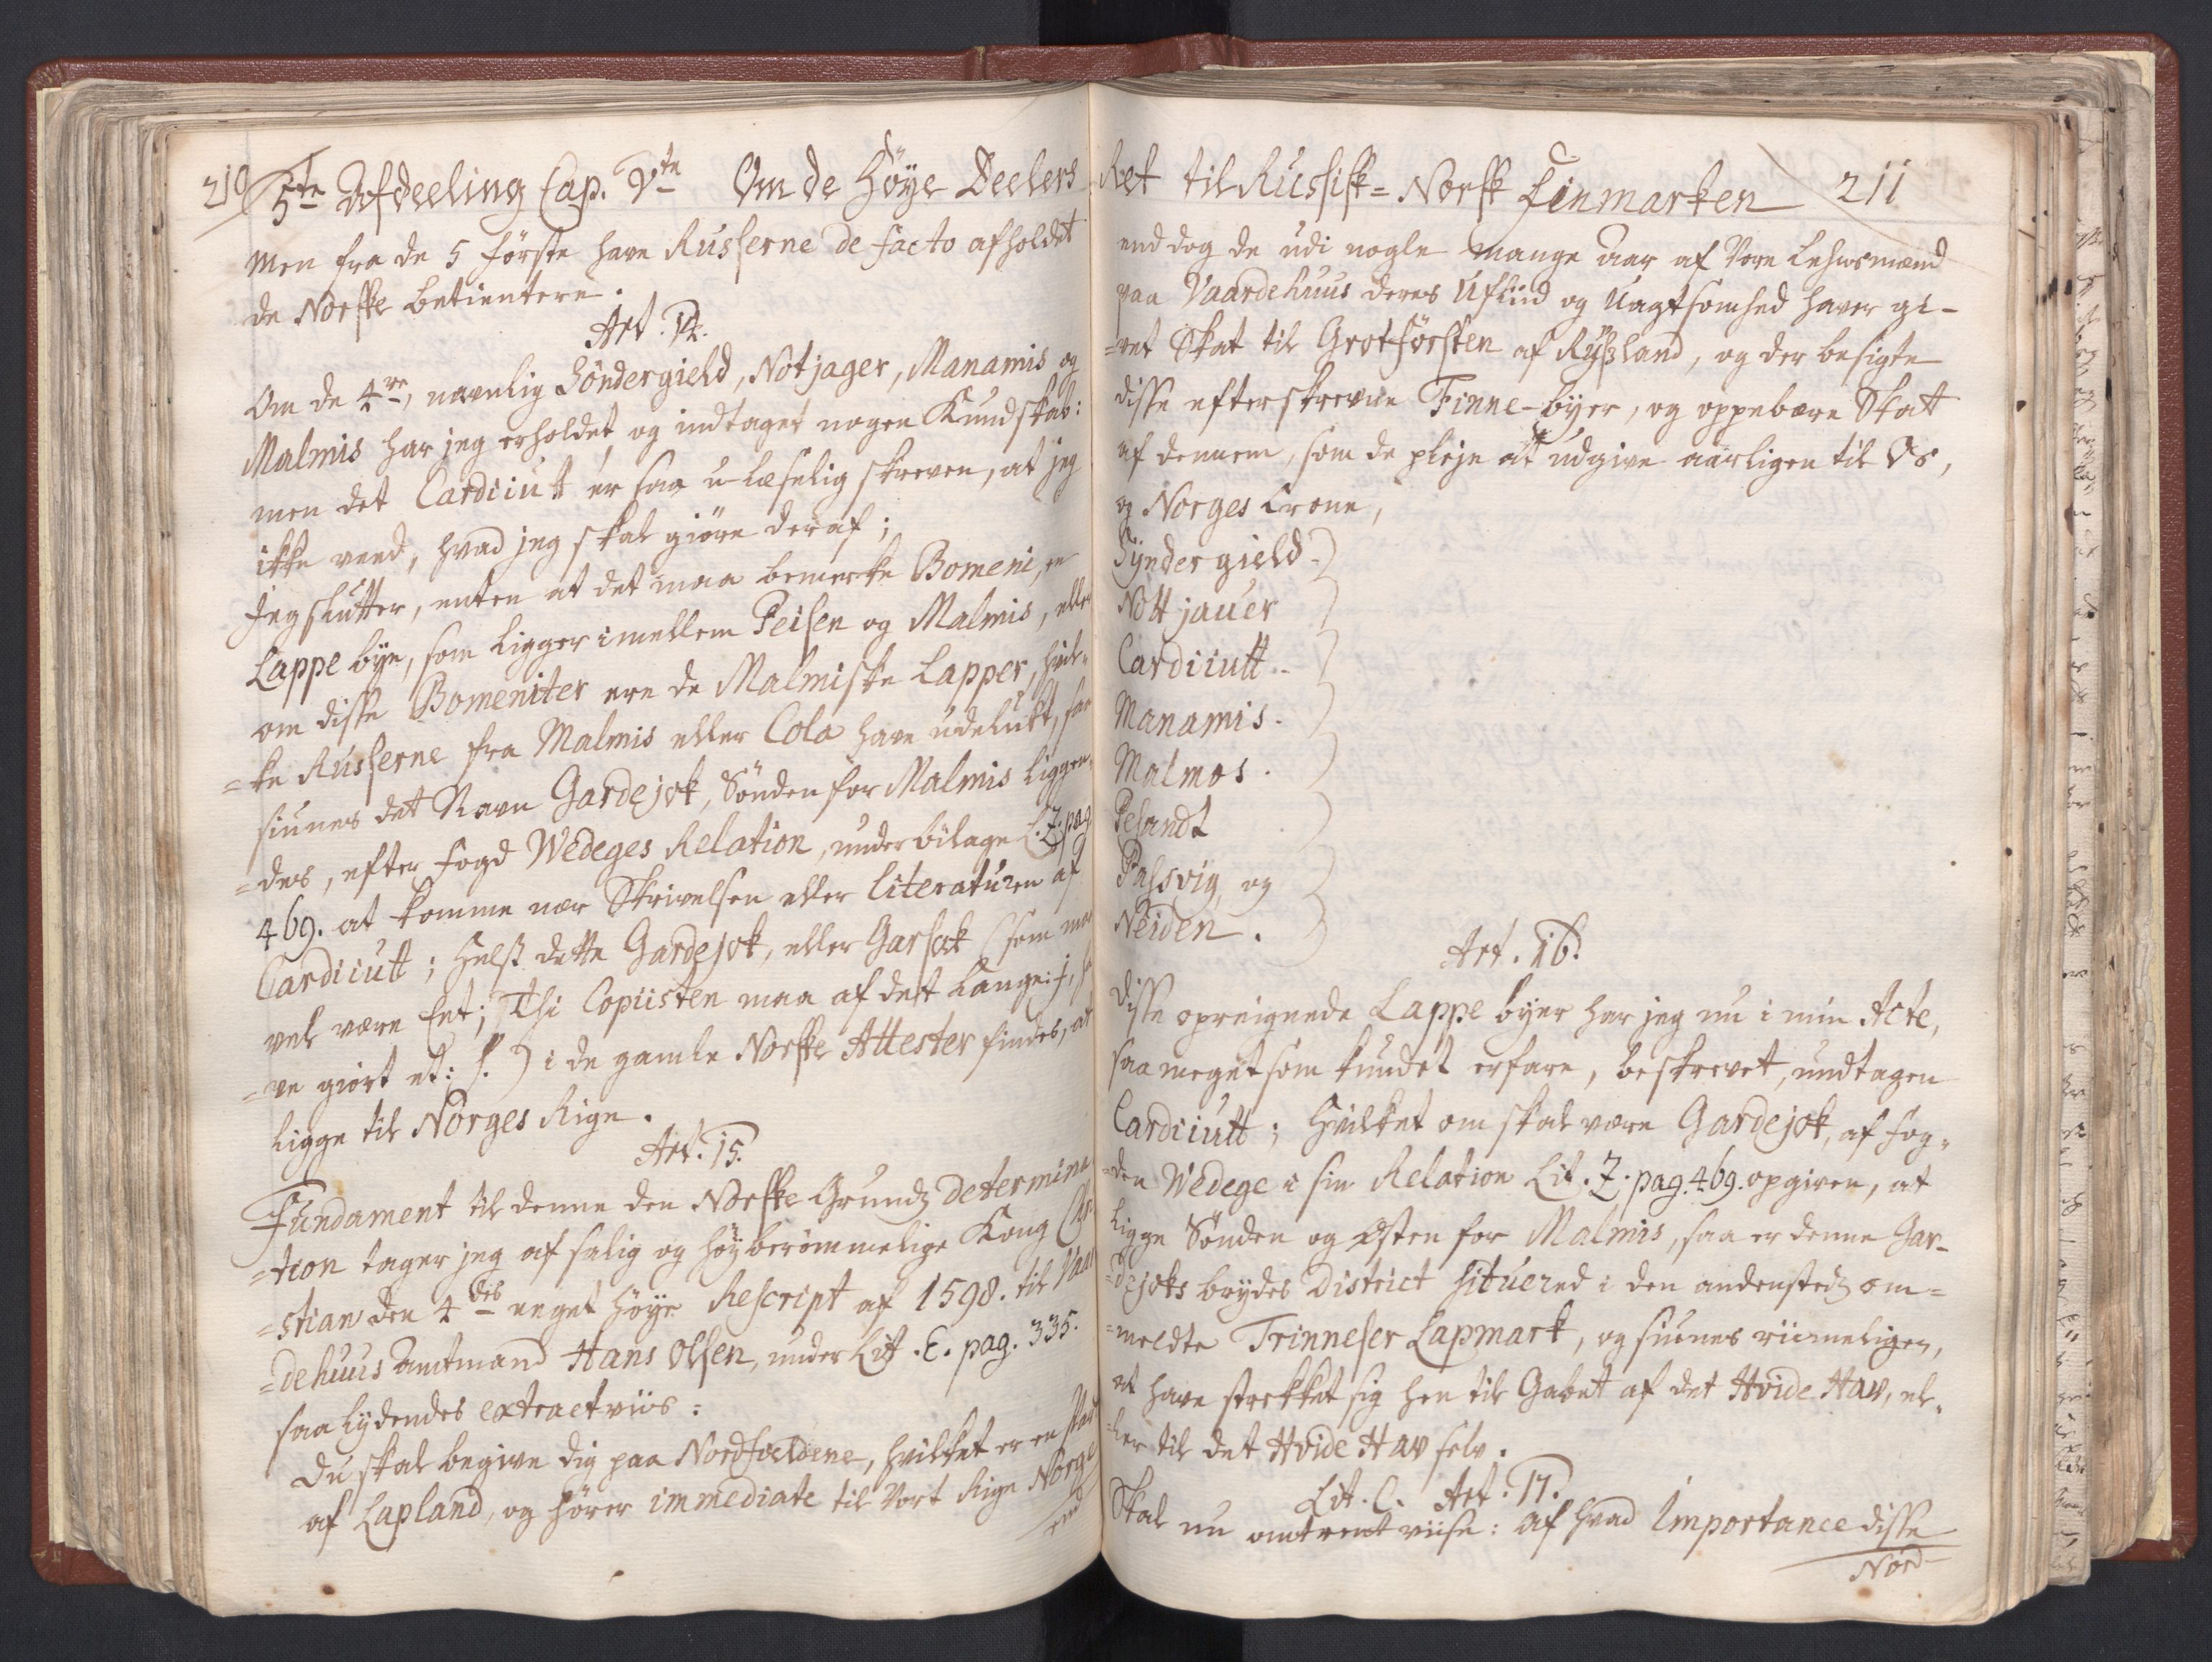 210 5te Afdeeling Cap. Vte Om de Höye Deelers
Men fra de 5 förste have Russerne de facto afholdet
de Norske betientere.
Art. 14.
Om de 4re, navnlig Söndergield, Notjager, Manamis og
Malmis har jeg erholdet og indtaget nogen Kundskab:
men det Cardiiutt er saa u-læselig skreven, at jeg
ikke veed, hvad jeg skal giöre deraf;
Jeg slutter, enten at det maa bemerke Bomeni, en
Lappe bye, som ligger imellem Peisen og Malmis, eller
om disse Bomeniter ere de Malmiske Lapper, hvil-
=ke Russerne fra Malmis eller Cola have udelukt, saa
siunes det Navn Gardejok, Sönden for Malmis liggen-
=des, efter Fogd Wedeges Relation, under bilage L. Z. pag.
469. at komme nær Skrivelsen eller literaturen af
Cardiiutt; Helst dette Gardejok, eller Garsok (som maa
vel være Eet; Thi Copiisten maa af det lange: j, ha
=ve giort et: s.) i de gamle Norske Attester findes, at
ligge til Norges Rige.
Art. 15.
Fundament til denne den Norske Grundz determina
=tion tager jeg af salig og höyberömmelige Kong Chri
=stian den 4des eeget höye Rescript af 1598. til Vaar
=dehuus Amtmand Hans Olsen, under Lit. E. pag. 335.
saa lydendes extractviis:
Du skal begive dig paa Nordfieldene, hvilket er en stad
af Lapland, og hörer immediate til Vort Rige Norge
end
Ret til Russisk=Norsk Finmarken 211
end dog de udi nogle mange aar af Vore Lehnsmænd
paa Vaardehuus deres Ufliid og Uagtsomhed haver gi-
=vet Skat til Grotförsten af Rysland, og der besigte
disse efterskrevne Finne-byer, og oppebære Skatt
af dennem, som de pleje at udgive aarligen til Os,
og Norges Crone,
Syndergield-)
Nottjauer )
Cardiiutt.. )
Manamis. )
Malmos. )
Pesandt )
Passvig, og )
Neiden. )
Art. 16.
Disse opreignede Lappe byer har jeg nu i min Acte,
saa meget som kundet erfare, beskrevet, undtagen
Cardiiutt; Hvilket om skal være Gardejok, af Fog-
=den Wedege i sin Relation Lit. Z. pag. 469. opgiven, at
ligge Sönden og Østen for Malmis, saa er denne Gar-
=dejoks brydes District situered i den andenstedz om=
=meldte Trinneser Lapmark, og siunes riimeligen,
at have strekket sig hen til Gabet af det Hvide Hav, el-
=ler til det Hvide Hav selv.
Lit. C. Art. 17.
Skal nu omtrent viise: af hvad Importance disse
Nord-